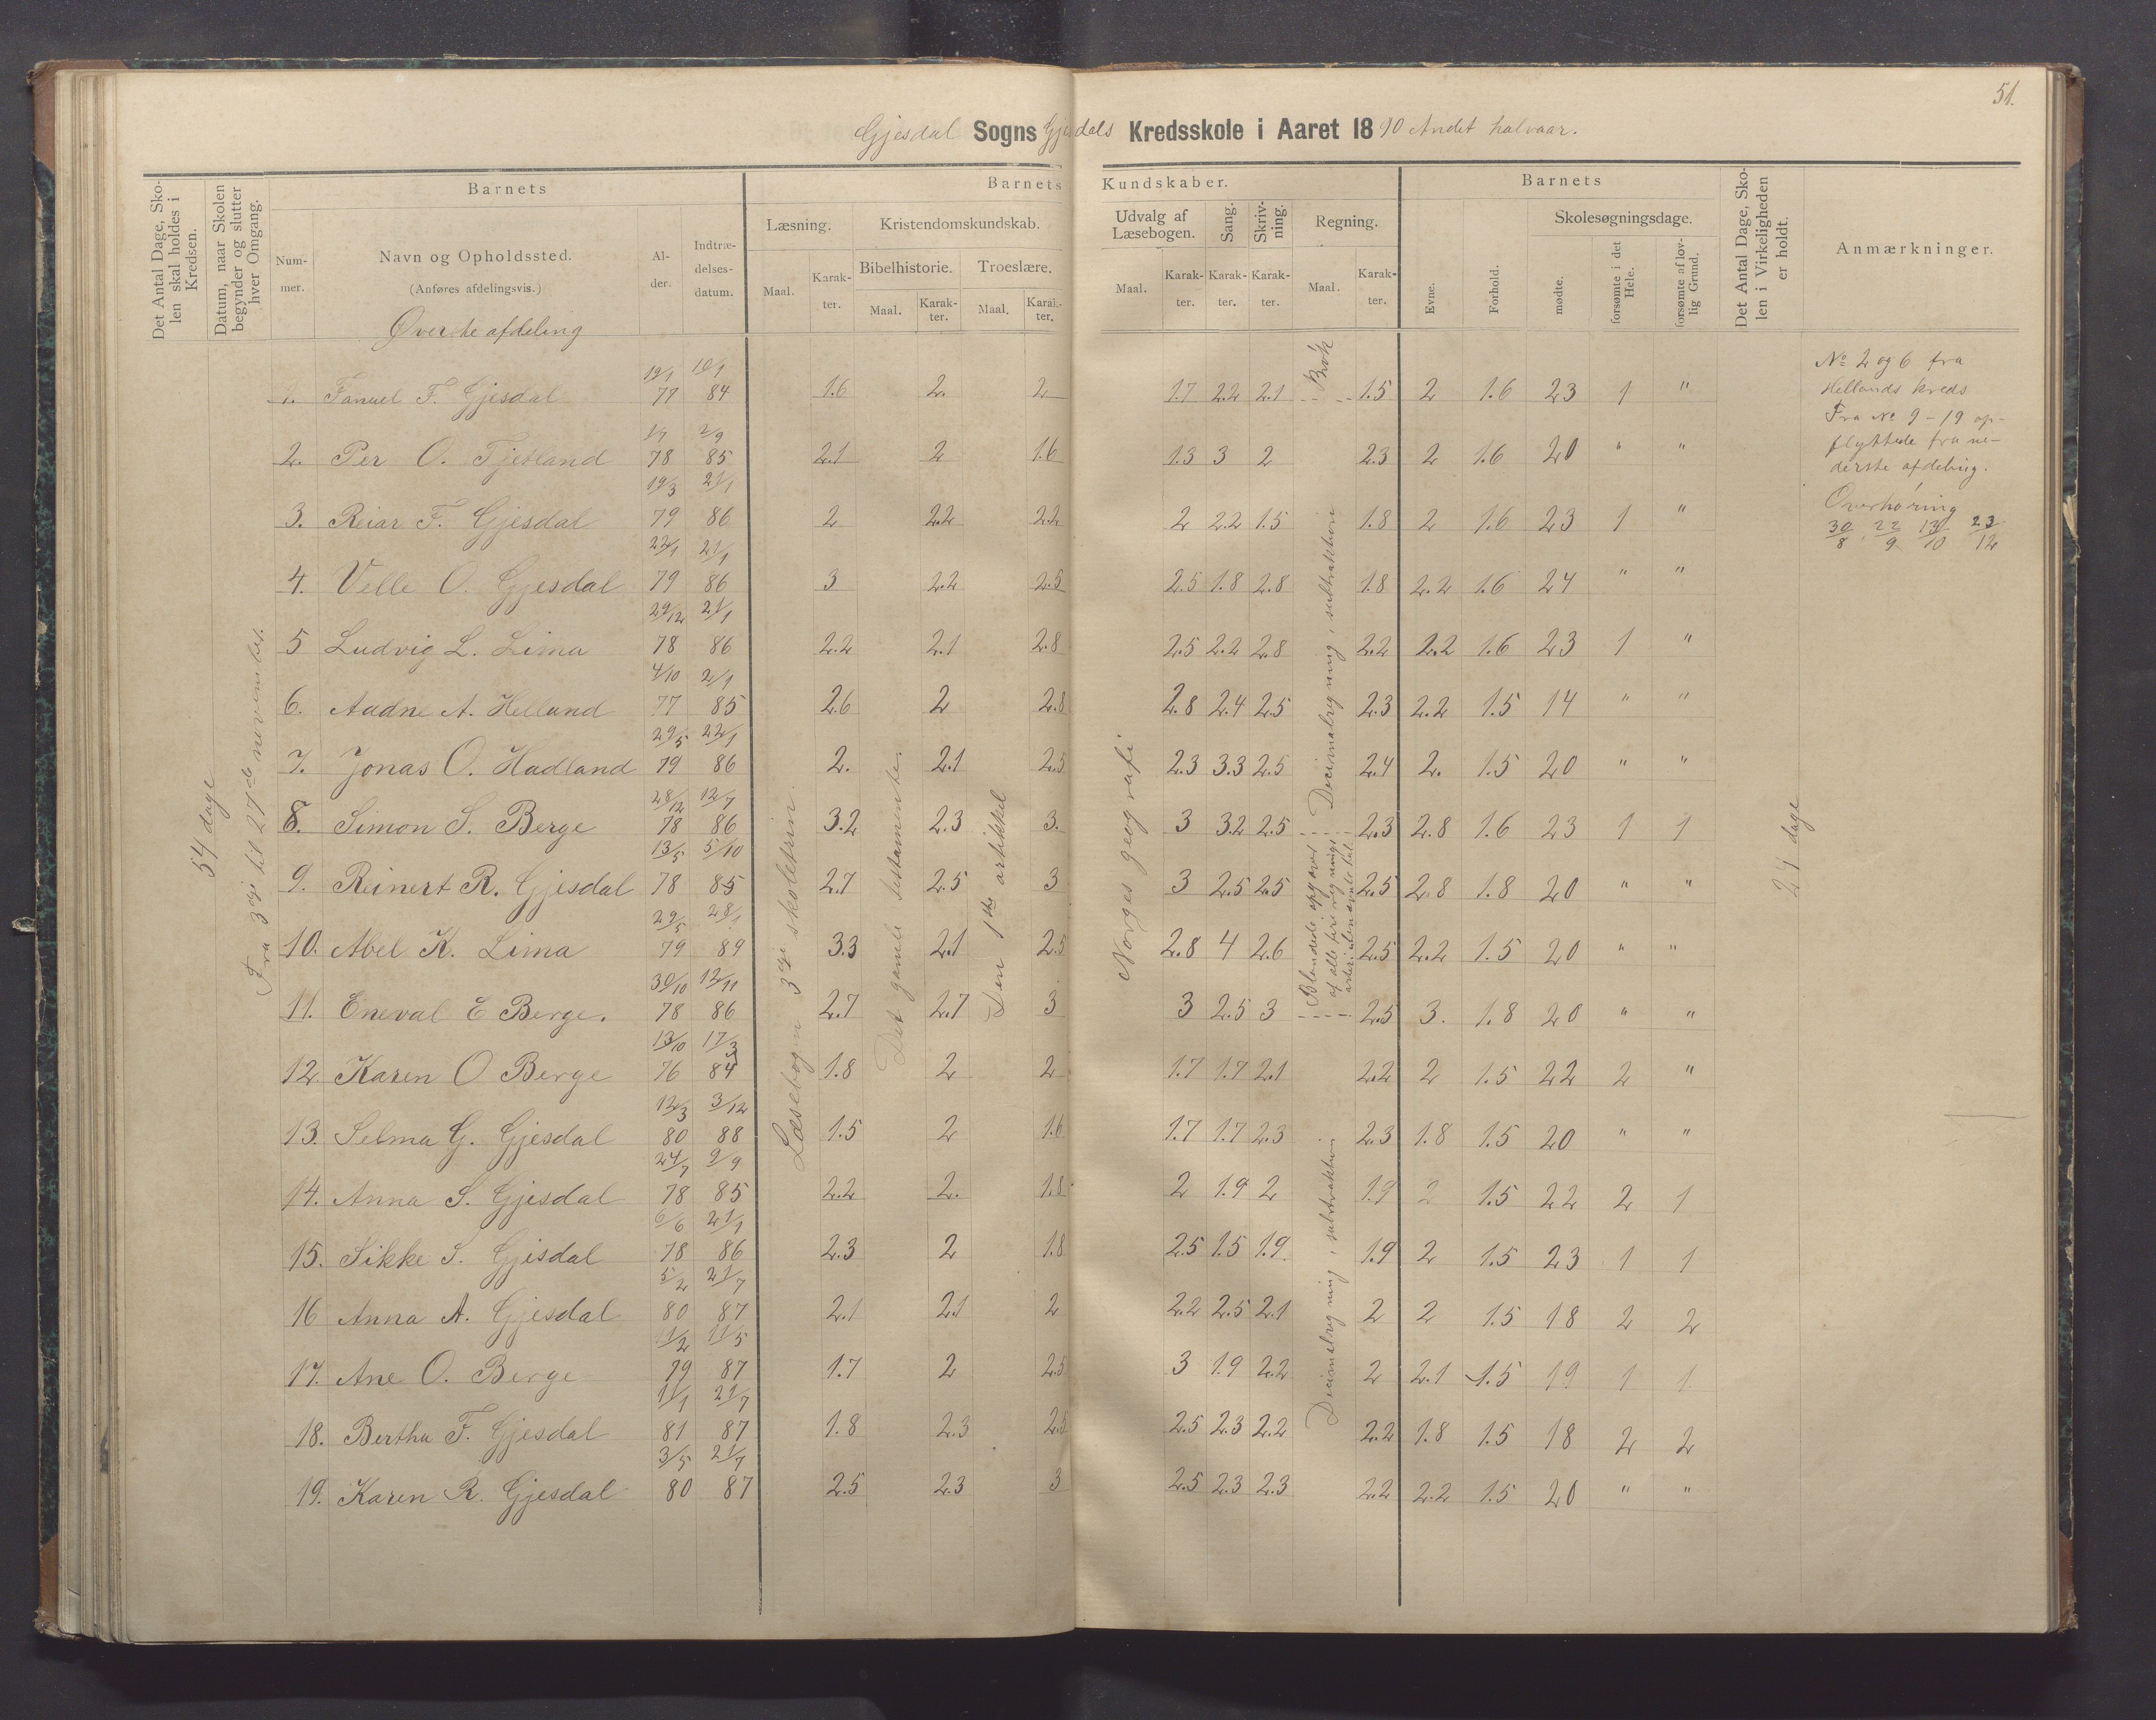 51.
Gjesdal Sogns Gjesdals Kredsskole i Aaret 1890 Andet halvaar.
Det Antal Dage, Skolen skal holdes i Kredsen.
Datum, naar Skolen begynder og slutter hver Omgang.
Barnets
Nummer.
Navn og Opholdssted.
(Anføres afdelingsvis.)
Alder.
Indtrædelsesdatum.
Barnets Kundskaber.
Læsning.
Maal. Karakter.
Kristendomskundskab.
Bibelhistorie. Troeslære.
Maal. Karakter. Maal. Karakter.
Udvalg af Læsebogen.
Maal. Karakter.
Sang. Karakter.
Skrivning. Karakter.
Regning.
Maal. Karakter.
Barnets
Evne. Forhold.
Skolesøgningsdage.
mødte. forsømte i det Hele. forsømte af lovlig Grund.
Det Antal Dage, Skolen i Virkeligheden er holdt.
Anmærkninger.
Øverste afdeling
54 dage
Fra 3dje til 27de november.
Læsebogen 3dje skoletrin.
Det gamle testamente.
Den 1ste artikkel
Norges geografi
Brøk
Decimalregning, subtraktion
Blandede opgaver af alle fire regningsarter i ubenævnte tal.
Decimalregning, subtraktion
24 dage
1. Fanuel F. Gjesdal 19/1 77 10/1 84 1.6 2. 2 1.7 2.2 2.1 1.5 2 1.6 23 1 "
2. Per O. Tjetland 1/7 78 2/9 85 2.1 2 1.6 1.3 3 2 2.3 2 1.6 20 " "
3. Reiar F. Gjesdal 19/3 79 21/1 86 2 2.2 2.2 2 2.2 1.5 1.8 2 1.6 23 1 "
4. Velle O. Gjesdal 22/1 79 21/1 86 3 2.2 2.5 2.5 1.8 2.8 1.8 2.2 1.6 24 " "
5 Ludvig L. Lima 29/12 78 21/1 86 2.2 2.1 2.8 2.5 2.2 2.8 2.2 2.2 1.6 23 1 "
6. Aadne A. Helland 4/10 77 2/1 85 2.6 2 2.8 2.8 2.4 2.5 2.3 2.2 1.5 14 " "
7. Jonas O. Hadland 29/5 79 22/1 86 2. 2.1 2.5 2.3 3.3 2.5 2.4 2. 1.5 20 " "
8. Simon S. Berge 28/12 78 12/7 86 3.2 2.3 3. 3 3.2 2.5 2.3 2.8 1.6 23 1 1
9. Reinert R. Gjesdal 13/5 78 5/10 85 2.7 2.5 3 3 2.5 2.5 2.5 2.8 1.8 20 " "
10. Abel K. Lima 29/5 79 28/1 89 3.3 2.1 2.5 2.8 4 2.6 2.5 2.2 1.5 20 " "
11. Eneval E Berge. 30/10 78 12/11 86 2.7 2.7 3 3 2.5 3 2.5 3. 1.8 20 " "
12 Karen O Berge 13/10 76 17/3 84 1.8 2 2 1.7 1.7 2.1 2.2 2 1.5 22 2 "
13. Selma G. Gjesdal 12/3 80 3/12 88 1.5 2 1.6 1.7 1.7 2.3 2.3 1.8 1.5 20 " "
14. Anna S. Gjesdal 24/7 78 9/9 85 2.2 2. 1.8 2 1.9 2 1.9 2 1.5 22 2 1
15. Sikke S. Gjesdal 6/6 78 21/1 86 2.3 2 1.8 2.5 1.5 1.9 1.9 2 1.5 23 1 1
16 Anna A. Gjesdal 5/2 80 21/7 87 2.1 2.1 2 2.2 2.5 2.1 2 2 1.5 18 2 2
17. Ane O. Berge 11/2 79 11/5 87 1.7 2 2.5 3 1.9 2.2 2 2.1 1.5 19 1 1
18. Bertha F. Gjesdal 1/1 81 21/7 87 1.8 2.3 2.5 2.5 2.3 2.2 2.2 1.8 1.5 18 2 2
19. Karen R. Gjesdal 3/5 80 21/7 87 2.5 2.3 3 2.5 2.3 2.3 2.2 2.2 1.5 20 " "
No 2 og 6 fra
Hellands kreds
Fra No 9-19 op-
flyttede fra ne-
derste afdeling.
Overhøring
30/8, 22/9 13/10 23/12